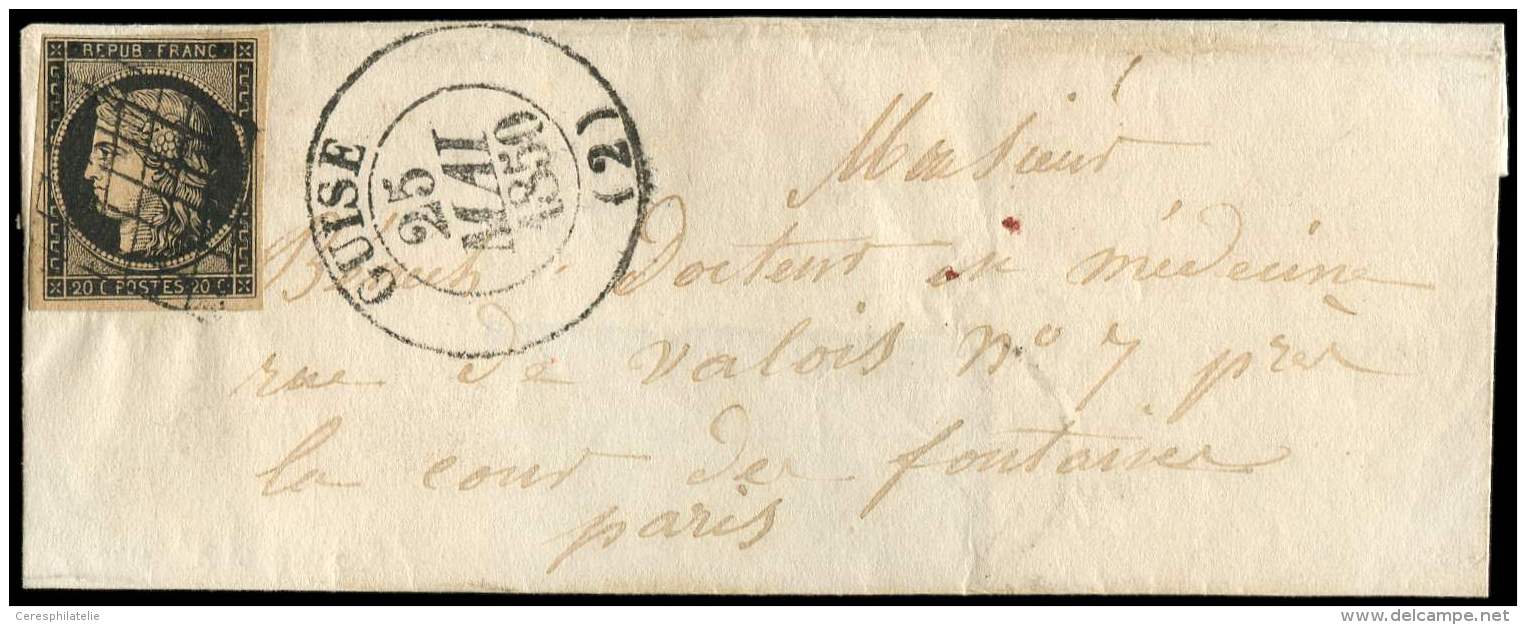 REPUB · FRANC
20 C POSTES 20 C
GUISE (2)
25
MAI
1850
Monsieur
docteur en médecine
rue de valois n° 7 près
la cour des fontaines
paris
Ceresphilatelie
delcampe.net